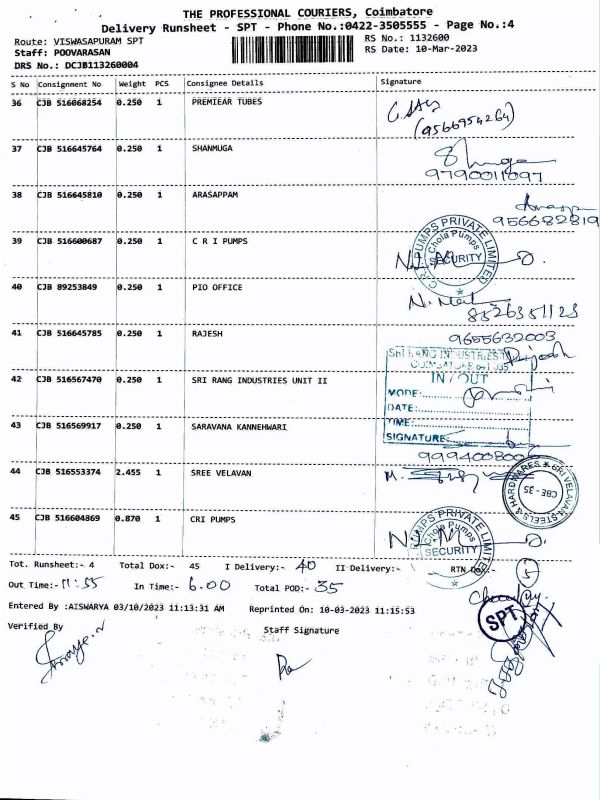 THE PROFESSIONAL COURIERS, Coimbatore
Delivery Runsheet - SPT - Phone No.:0422-3505555 - Page No.:4
Route: VISWASAPURAM SPT RS No.: 1132600
Staff: POOVARASAN RS Date: 10-Mar-2023
DRS No.: DCJB113260004
S No Consignment No Weight PCS Consignee Details Signature
36 CJB 516068254 0.250 1 PREMIEAR TUBES
(9566954264)
37 CJB 516645764 0.250 1 SHANMUGA
9790011097
38 CJB 516645810 0.250 1 ARASAPPAM
956682819
39 CJB 516600687 0.250 1 C R I PUMPS
C.R.I. PUMPS PRIVATE LIMITED
Chola Pumps
SECURITY
40 CJB 89253849 0.250 1 PIO OFFICE
8526351123
41 CJB 516645785 0.250 1 RAJESH
9655632003
Rajesh
SRI RANG INDUSTRIES
COIMBATORE 641 035
IN / OUT
42 CJB 516567470 0.250 1 SRI RANG INDUSTRIES UNIT II
MODE:
DATE:
43 CJB 516569917 0.250 1 SARAVANA KANNEHWARI
TIME:
SIGNATURE
9994008006
44 CJB 516553374 2.455 1 SREE VELAVAN
SRI VELAVAN STEELS & HARDWARES
CBE - 35
45 CJB 516604869 0.870 1 CRI PUMPS
PUMPS PRIVATE LIMITED
Chola Pumps
SECURITY
Tot. Runsheet:- 4 Total Dox:- 45 I Delivery:- 40 II Delivery:- RTN Dox:- 5
Out Time:- 11:55 In Time:- 6.00 Total POD:- 35
Entered By :AISWARYA 03/10/2023 11:13:31 AM Reprinted On: 10-03-2023 11:15:53
SPT
Verified By Staff Signature